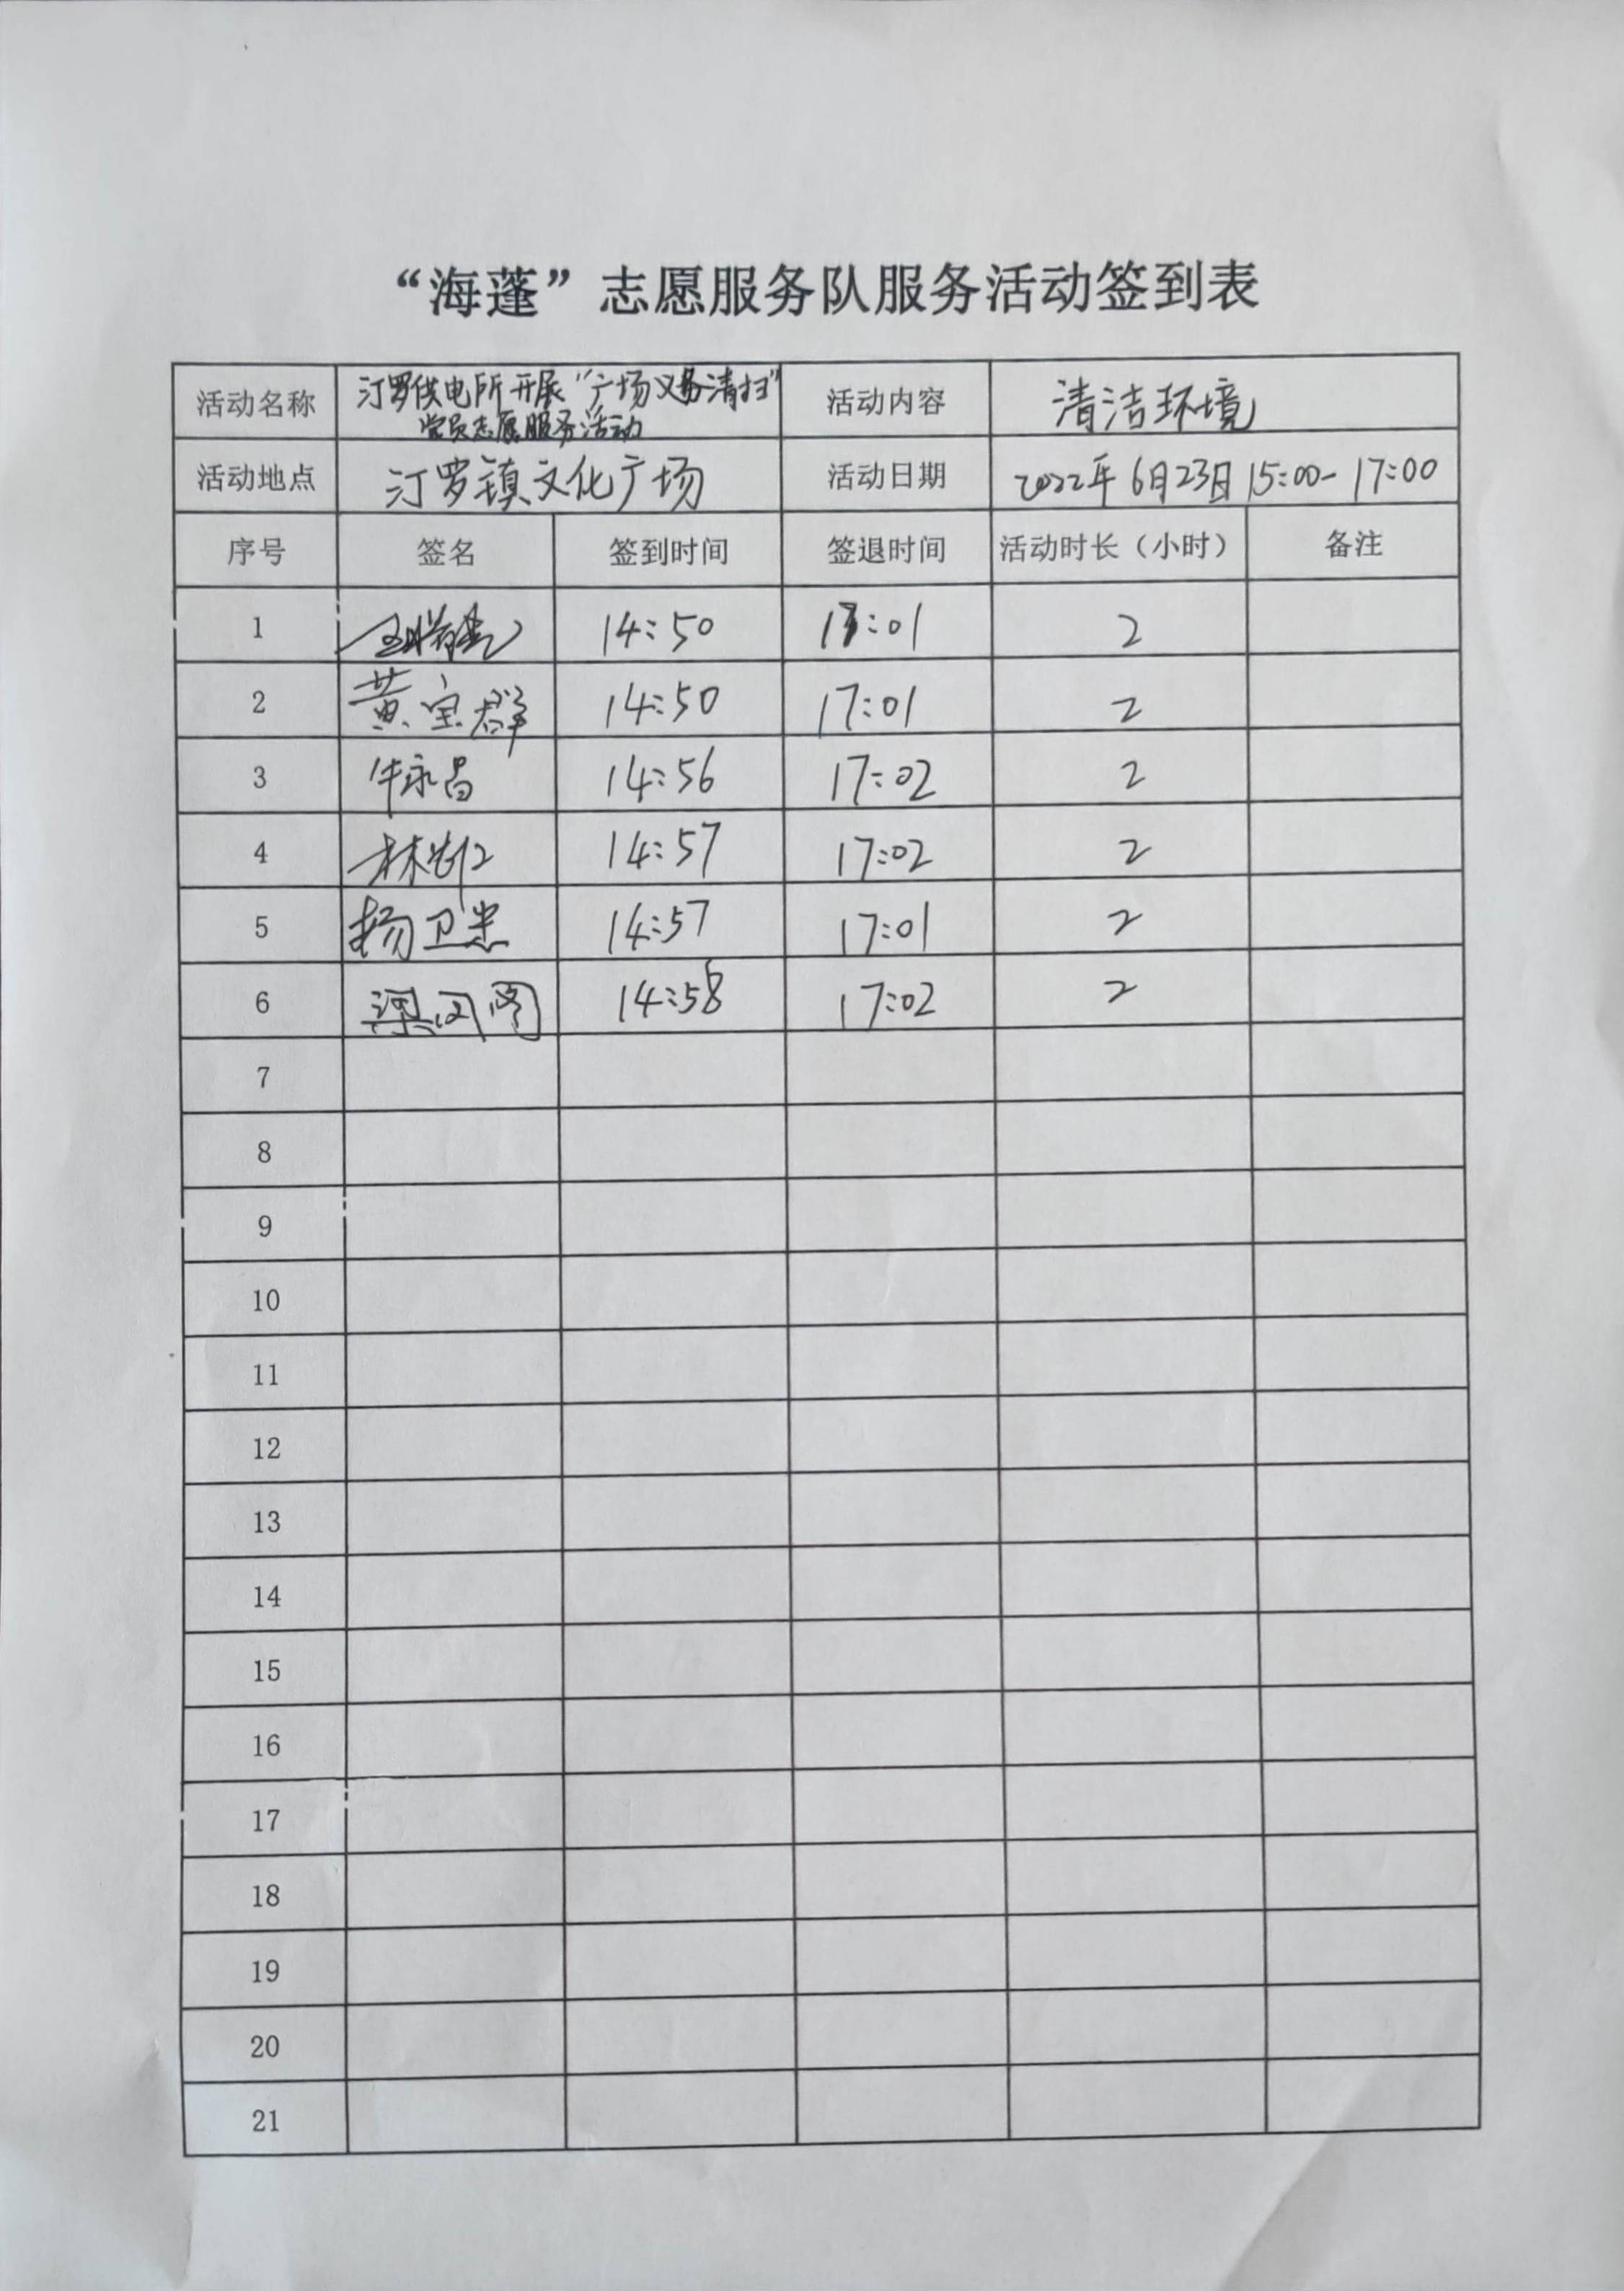 “海蓬”志愿服务队服务活动签到表
活动名称 汀罗供电所开展“广场义务清扫” 活动内容 清洁环境
党员志愿服务活动
活动地点 汀罗镇文化广场 活动日期 2022年6月23日15:00-17:00
序号 签名 签到时间 签退时间 活动时长（小时） 备注
1 14:50 17:01 2
2 黄宝群 14:50 17:01 2
3 牛永昌 14:56 17:02 2
4 14:57 17:02 2
5 杨卫忠 14:57 17:01 2
6 14:58 17:02 2
7
8
9
10
11
12
13
14
15
16
17
18
19
20
21